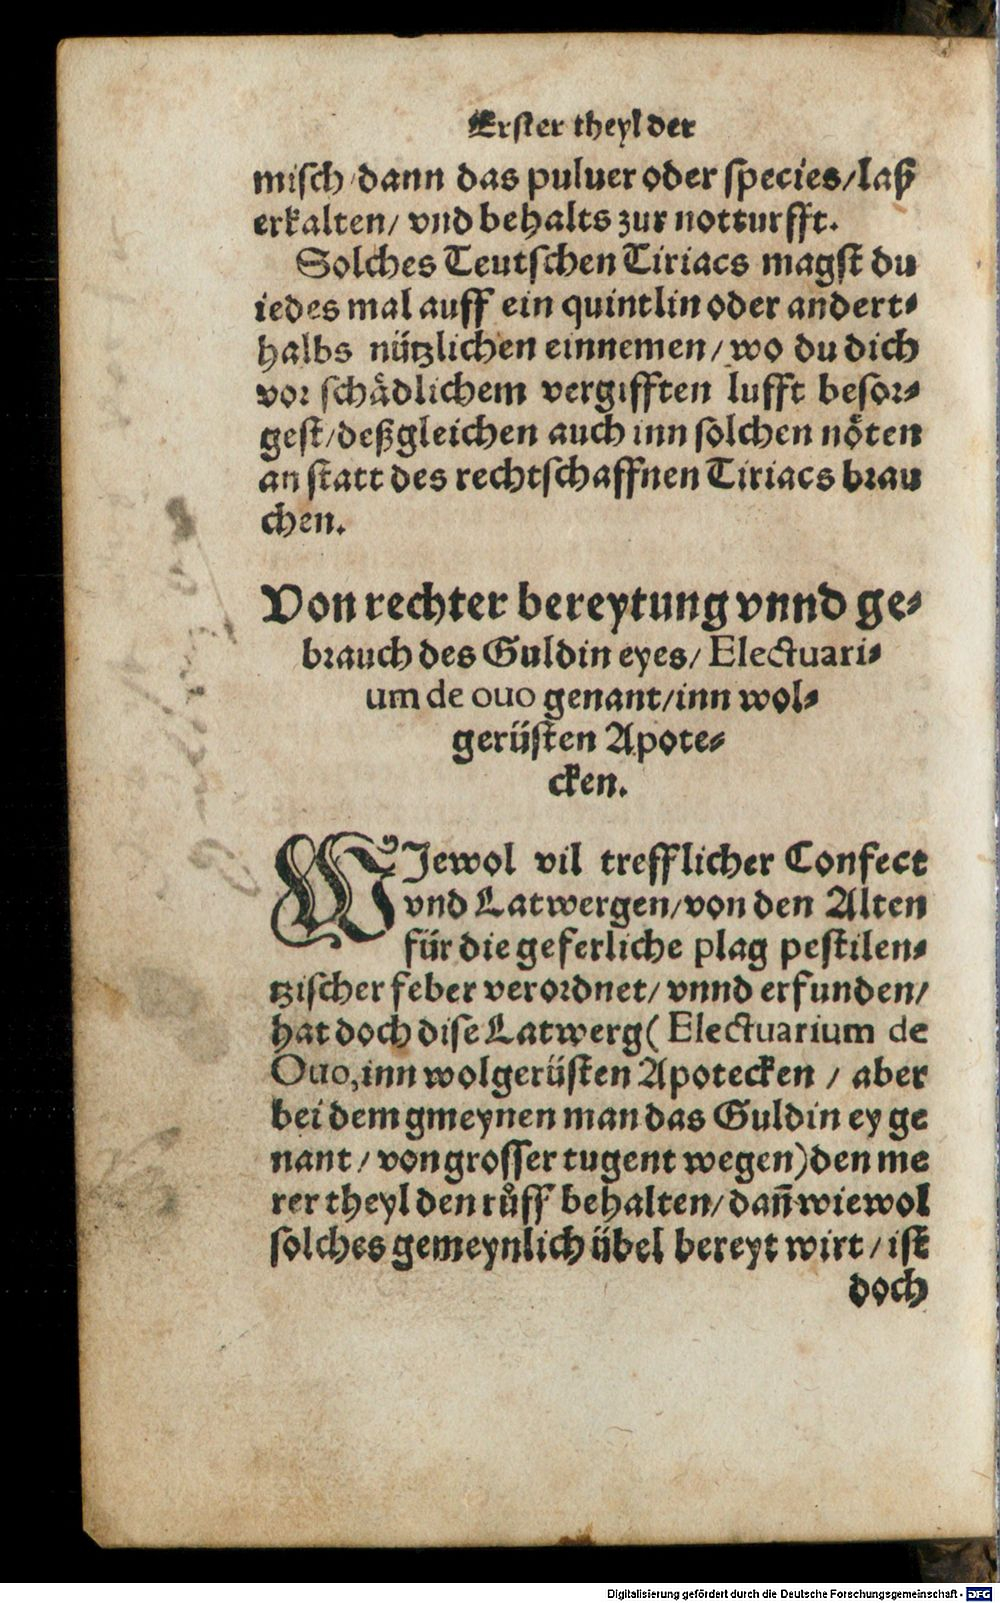 Erster theyl der
misch/dann das puluer oder species/laß
erkalten/ vnd behalts zur notturfft.
Solches Teutschen Tiriacs magst du
iedes mal auff ein quintlin oder andert⸗
halbs nützlichen einnemen/ wo du dich
vor schädlichem vergifften lufft besor⸗
gest/deßgleichen auch inn solchen nöten
an statt des rechtschaffnen Tiriacs brau
chen.
Von rechter bereytung vnnd ge⸗
brauch des Guldin eyes/ Electuari⸗
um de ouo genant/inn wol⸗
gerüsten Apote⸗
cken.
WJewol vil trefflicher Confect
vnd Latwergen/von den Alten
für die geferliche plag pestilen⸗
tzischer feber verordnet/ vnnd erfunden/
hat doch dise Latwerg( Electuarium de
Ouo, inn wolgerüsten Apotecken / aber
bei dem gmeynen man das Guldin ey ge
nant / von grosser tugent wegen) den me
rer theyl den růff behalten/ dañ wiewol
solches gemeynlich übel bereyt wirt / ist
doch
Digitalisierung gefördert durch die Deutsche Forschungsgemeinschaft - DFG